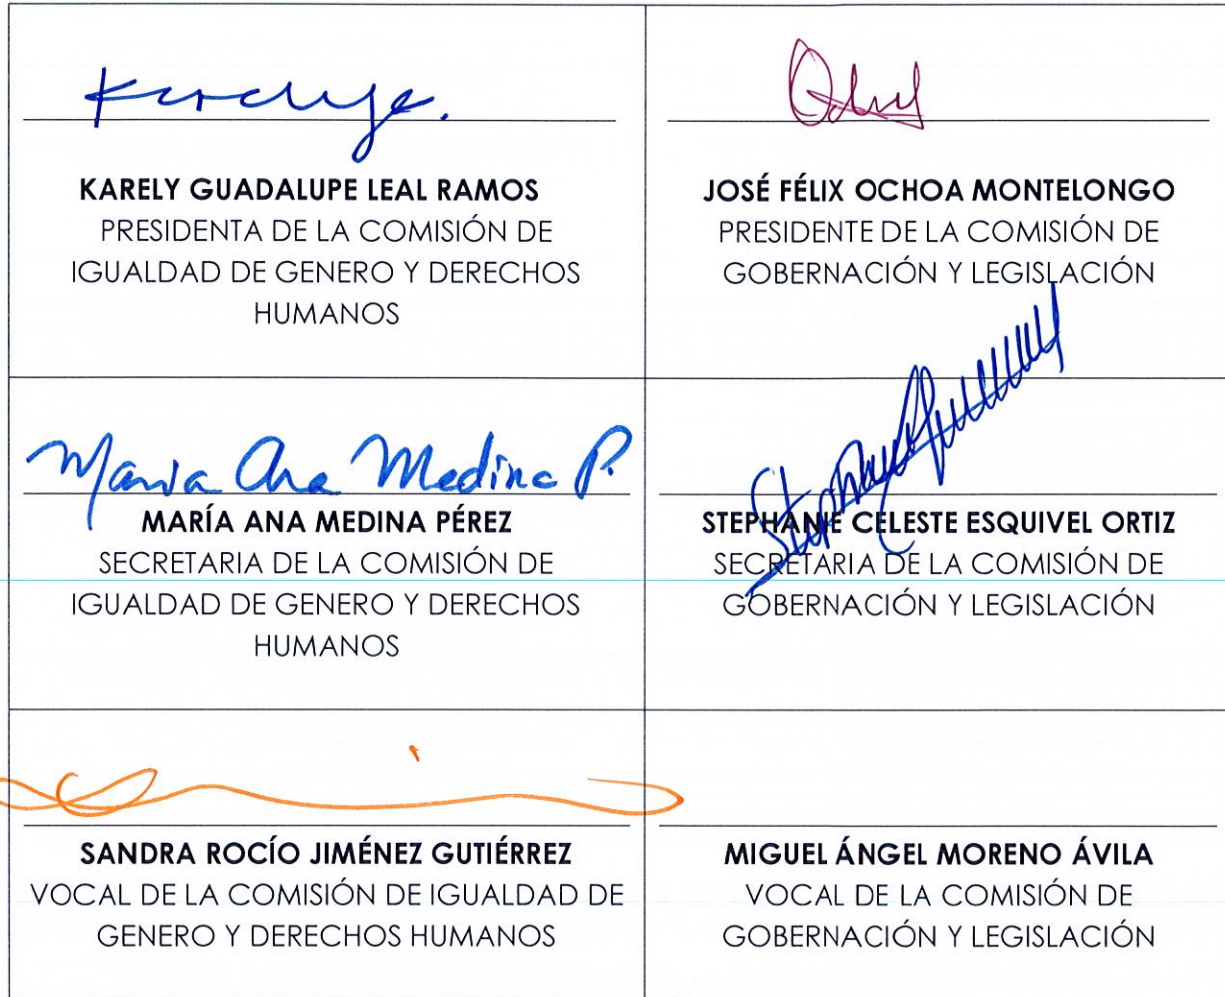 KARELY GUADALUPE LEAL RAMOS
PRESIDENTA DE LA COMISIÓN DE
IGUALDAD DE GENERO Y DERECHOS
HUMANOS
JOSÉ FÉLIX OCHOA MONTELONGO
PRESIDENTE DE LA COMISIÓN DE
GOBERNACIÓN Y LEGISLACIÓN
Maria Ana Medina P.
MARÍA ANA MEDINA PÉREZ
SECRETARIA DE LA COMISIÓN DE
IGUALDAD DE GENERO Y DERECHOS
HUMANOS
STEPHANIE CELESTE ESQUIVEL ORTIZ
SECRETARIA DE LA COMISIÓN DE
GOBERNACIÓN Y LEGISLACIÓN
SANDRA ROCÍO JIMÉNEZ GUTIÉRREZ
VOCAL DE LA COMISIÓN DE IGUALDAD DE
GENERO Y DERECHOS HUMANOS
MIGUEL ÁNGEL MORENO ÁVILA
VOCAL DE LA COMISIÓN DE
GOBERNACIÓN Y LEGISLACIÓN